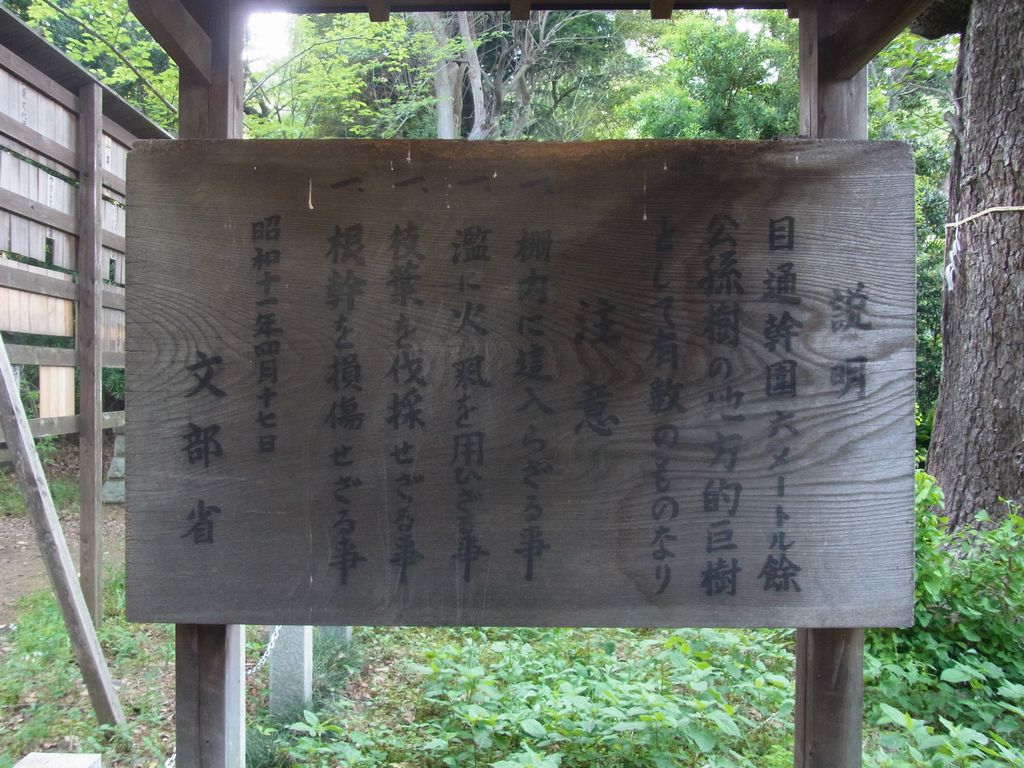 説明
目通幹圍六メートル餘
公孫樹の地方的巨樹
として有数のものなり
注意
一、柵内に這入らざる事
一、濫に火氣を用ひざる事
一、枝葉を伐採せざる事
一、根幹を損傷せざる事
昭和十一年四月十七日
文部省